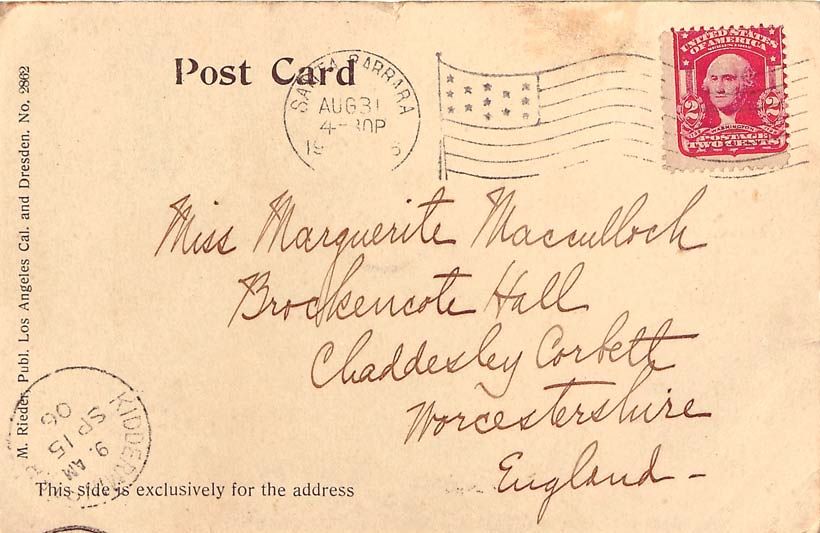 Post Card
SANTA BARBARA
AUG 31
4-30P
19 6
UNITED STATES
OF AMERICA
SERIES 1902
2 2
WASHINGTON
POSTAGE
TWO CENTS
M. Rieder, Publ. Los Angeles Cal. and Dresden. No. 2862
Miss Marguerite Macculloch
Brockencote Hall
Chaddesley Corbett
Worcestershire
England -
KIDDERM
9. AM
SP 15
06
This side is exclusively for the address